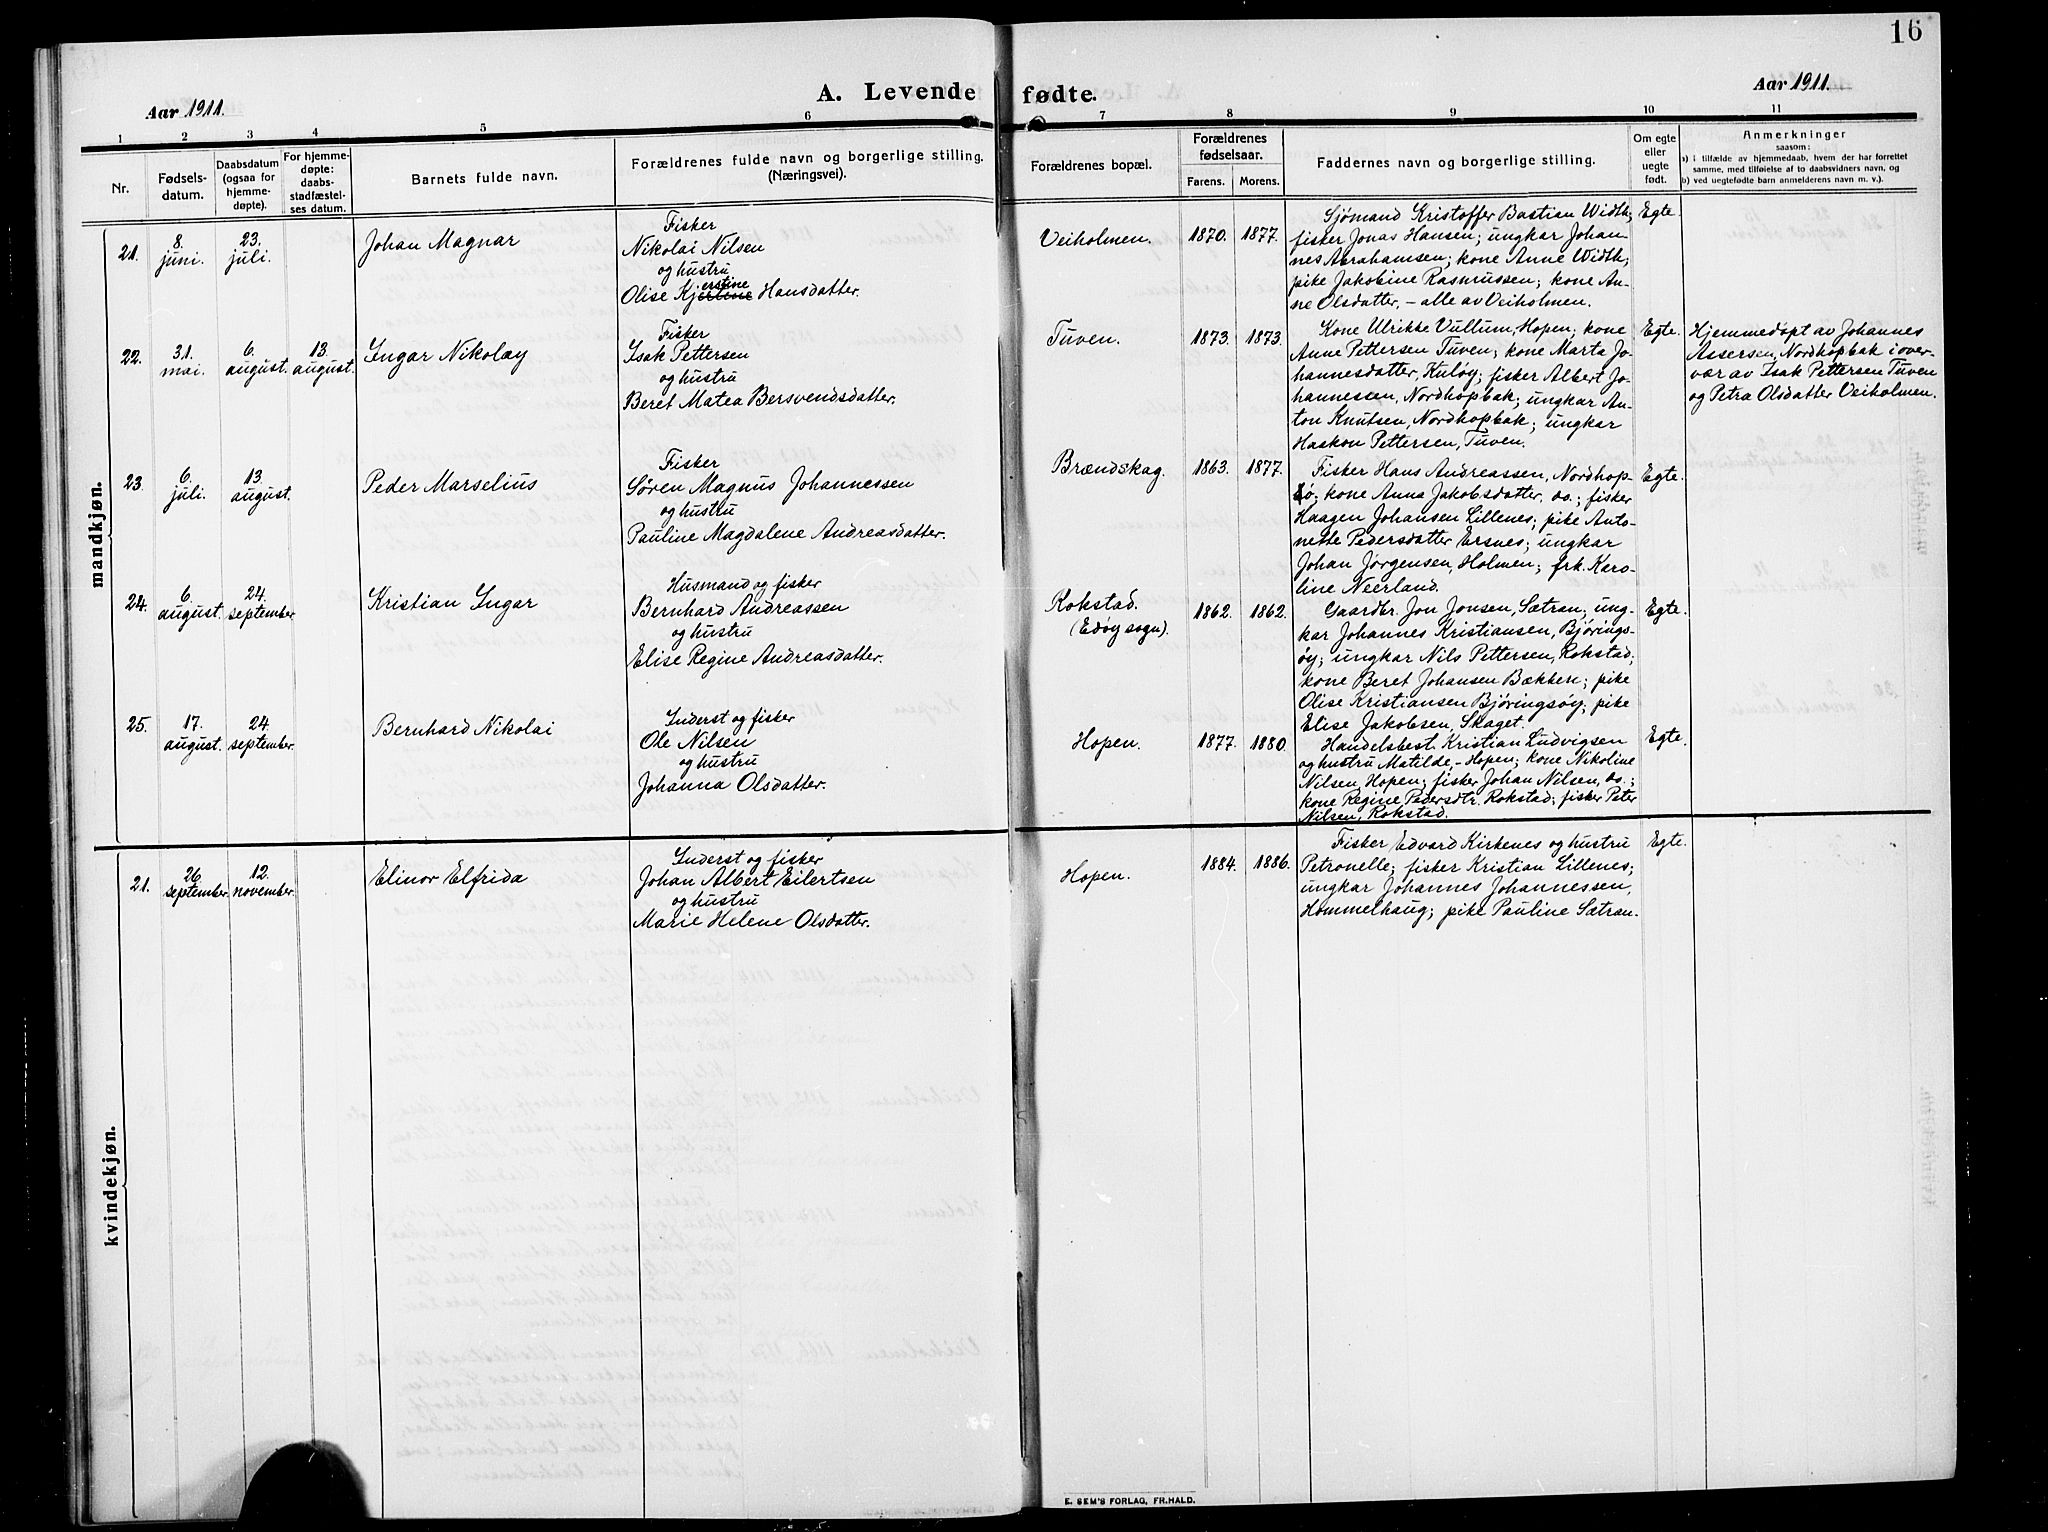 16
A. Levende fødte.
Aar 1911.
Aar 1911.
1 2 3 4 5 6 7 8 9 10 11
Nr.
Fødsels-
datum.
Daabsdatum
(ogsaa for
hjemme-
døpte).
For hjemme-
døpte:
daabs-
stadfæstel-
ses datum.
Barnets fulde navn.
Forældrenes fulde navn og borgerlige stilling.
(Næringsvei).
Forældrenes bopæl.
Forældrenes
fødselsaar.
Farens. Morens.
Faddernes navn og borgerlige stilling.
Om egte
eller
uegte
født.
Anmerkninger
saasom:
a) i tilfælde av hjemmedaab, hvem der har forrettet
samme, med tilføielse af to daabsvidners navn, og
b) ved uegtefødte barn anmelderens navn m. v.).
mandkjøn.
21.
8.
juni.
23.
juli.
Johan Magnar
Fisker
Nikolai Nilsen
og hustru
erstine
Olise Kjertene Hansdatter.
Veiholmen.
1870. 1877.
Sjømand Kristoffer Bastian Width;
fisker Jonas Hansen; ungkar Johan-
nes Abrahamsen; kone Anne Width;
pike Jakobine Rasmussen; kone An-
ne Olsdatter, – alle av Veiholmen.
Egte.
22.
31.
mai.
6.
august.
13.
august.
Ingar Nikolay
Fisker
Isak Pettersen
og hustru
Beret Matea Bersvendsdatter.
Tuven.
1873. 1873.
Kone Ulrikke Vullum, Hopen; kone
Anne Pettersen Tuven; kone Marta Jo-
hannesdatter, Kuløy; fisker Albert Jo-
hannessen, Nordhopbak; ungkar An-
ton Knutsen, Nordhopbak; ungkar
Haakon Pettersen, Tuven.
Egte.
Hjemmedøpt av Johannes
Assersen, Nordhopbak i over-
vær av Isak Pettersen Tuven
og Petra Olsdatter Veiholmen.
23.
6.
juli.
13.
august.
Peder Marselius
Fisker
Søren Magnus Johannessen
og hustru
Pauline Magdalene Andreasdatter.
Brændskag.
1863. 1877.
Fisker Hans Andreassen, Nordhop-
ø; kone Anna Jakobsdatter, os.; fisker
Haagen Johansen Lillenes; pike Anto-
nette Pedersdatter Ersnes; ungkar
Johan Jørgensen, Holmen; frk. Karo-
line Neerland.
Egte.
24.
6.
august.
24.
september.
Kristian Ingar
Husmand og fisker
Bernhard Andreassen
og hustru
Elise Regine Andreasdatter.
Rokstad.
(Edøy sogn).
1862. 1862.
Gaardbr. Jon Jonsen, Sætran; ung-
kar Johannes Kristiansen, Bjørings-
øy; ungkar Nils Pettersen, Rokstad;
kone Beret Johansen Bækken; pike
Olise Kristiansen Bjøringsøy; pike
Elise Jakobsen, Skaget.
Egte.
25.
17.
august.
24.
september.
Bernhard Nikolai
Inderst og fisker
Ole Nilsen
og hustru
Johanna Olsdatter.
Hopen.
1877. 1880.
Handelsbest. Kristian Ludvigsen
og hustru Matilde, – Hopen; kone Nikoline
Nilsen, Hopen; fisker Johan Nilsen, os.;
kone Regine Pedersdtr. Rokstad; fisker Peter
Nilsen, Rokstad.
Egte.
kvindekjøn.
21.
26.
september.
12.
november.
Elinor Elfrida
Inderst og fisker
Johan Albert Eilertsen
og hustru
Marie Helene Olsdatter.
Hopen.
1884. 1886.
Fisker Edvard Kirkenes og hustru
Petronelle; fisker Kristian Lillenes;
ungkar Johannes Johannessen,
Hommelhaug; pike Pauline Sætran.
Egte.
E. SEM'S FORLAG, FR.HALD.